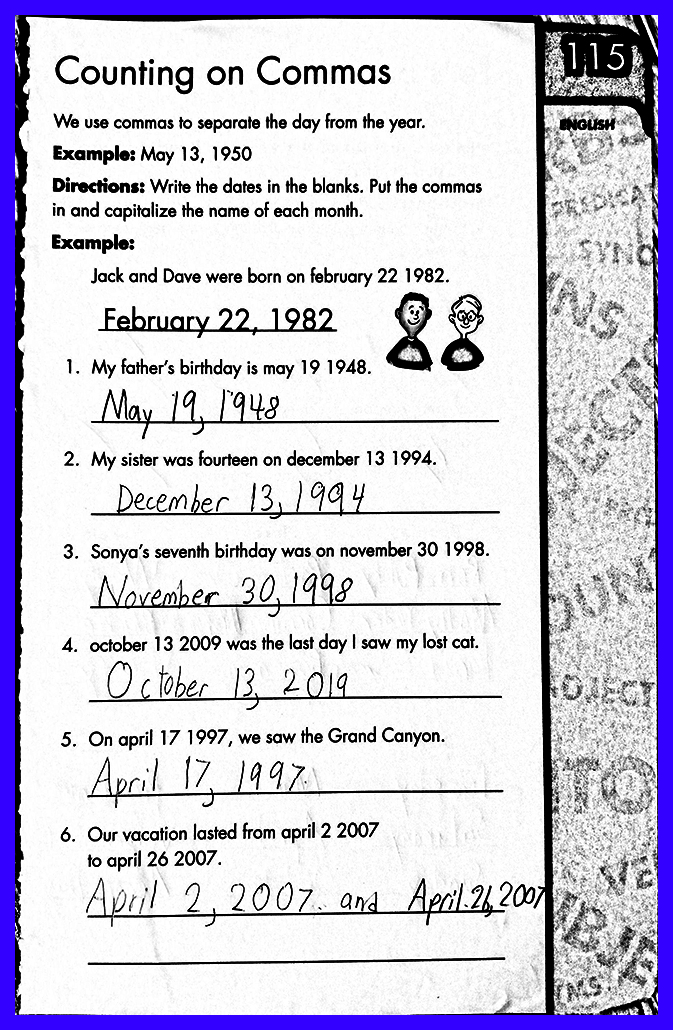 Counting on Commas
115
ENGLISH
We use commas to separate the day from the year.
Example: May 13, 1950
Directions: Write the dates in the blanks. Put the commas
in and capitalize the name of each month.
Example:
Jack and Dave were born on february 22 1982.
February 22, 1982
1. My father's birthday is may 19 1948.
May 19, 1948
2. My sister was fourteen on december 13 1994.
December 13, 1994
3. Sonya's seventh birthday was on november 30 1998.
November 30, 1998
4. october 13 2009 was the last day I saw my lost cat.
October 13, 2019
5. On april 17 1997, we saw the Grand Canyon.
April 17, 1997
6. Our vacation lasted from april 2 2007
to april 26 2007.
April 2, 2007 and April 26, 2007